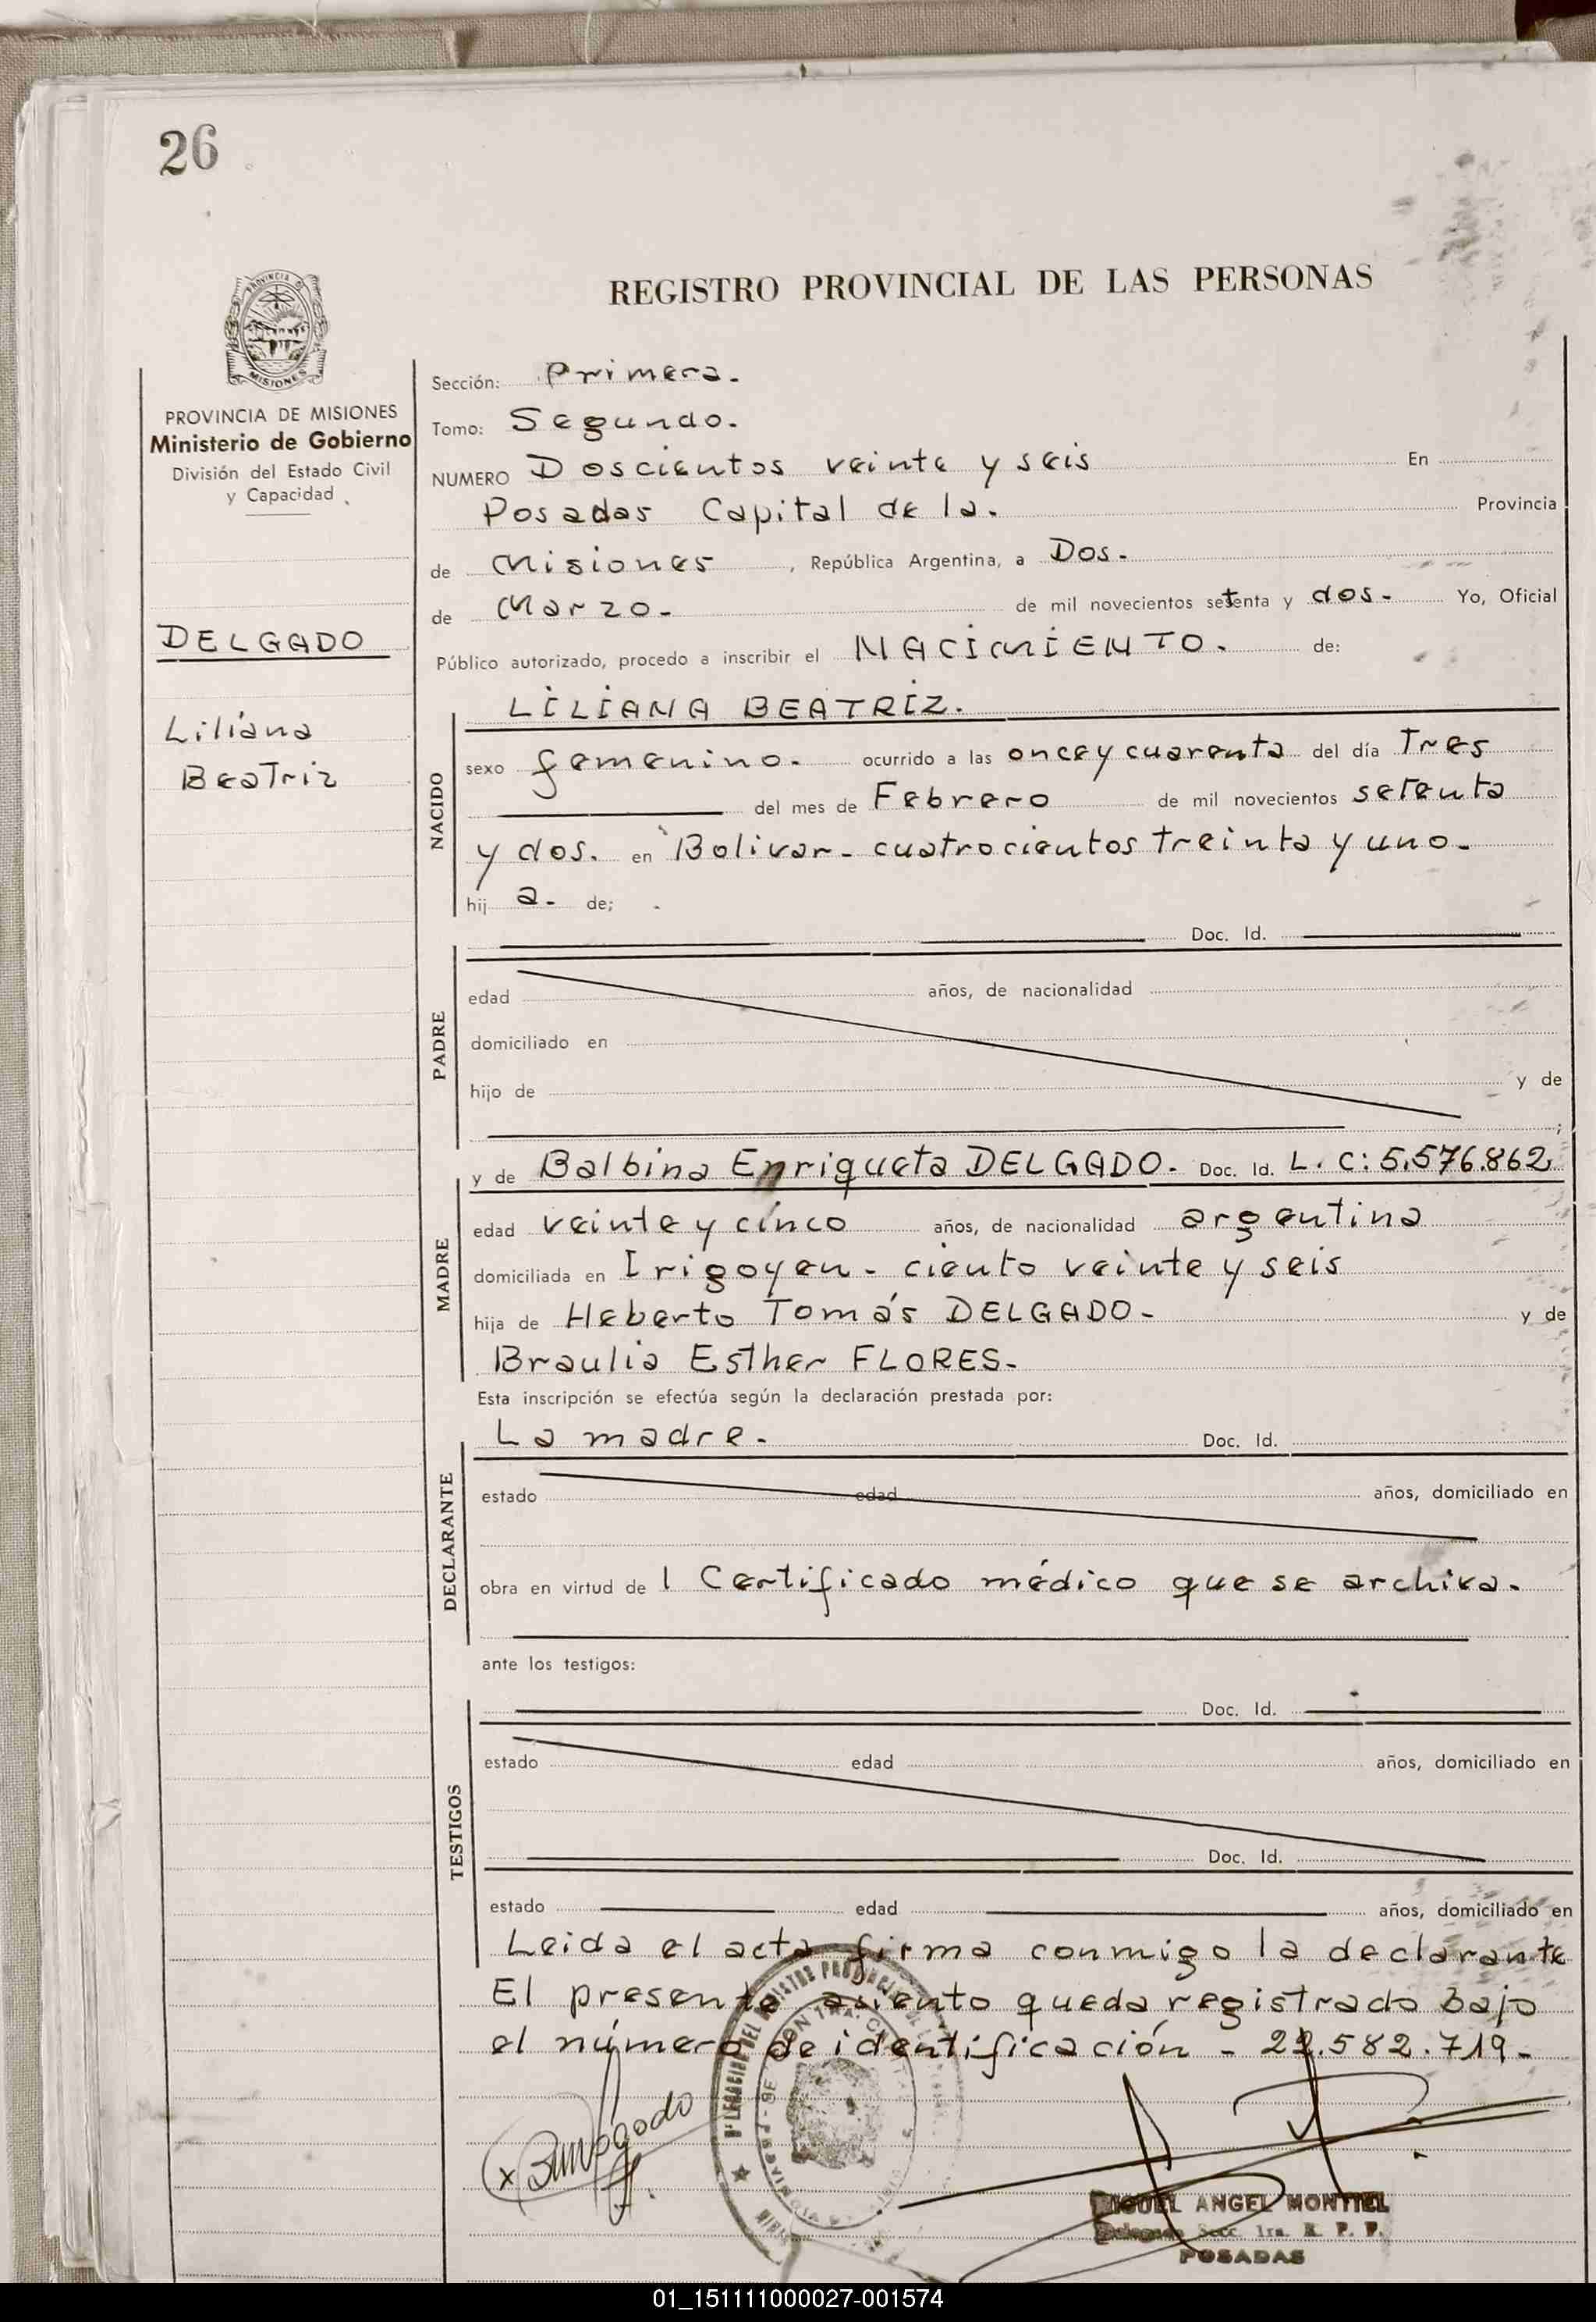 26
PROVINCIA DE MISIONES
PROVINCIA DE MISIONES
Ministerio de Gobierno
División del Estado Civil
y Capacidad
DELGADO
Liliana
Beatriz
REGISTRO PROVINCIAL DE LAS PERSONAS
Sección: Primera.
Tomo: Segundo.
NUMERO Doscientos veinte y seis En
Posadas Capital de la. Provincia
de Misiones, República Argentina, a Dos.
de Marzo. de mil novecientos setenta y dos. Yo, Oficial
Público autorizado, procedo a inscribir el NACIMIENTO. de:
LILIANA BEATRIZ.
NACIDO
sexo femenino. ocurrido a las once y cuarenta del día Tres
del mes de Febrero de mil novecientos setenta
y dos. en Bolivar - cuatrocientos treinta y uno.
hij a. de;
PADRE
Doc. Id.
edad años, de nacionalidad
domiciliado en
hijo de y de
;
MADRE
y de Balbina Enriqueta DELGADO. Doc. Id. L. C: 5.576.862,
edad veinte y cinco años, de nacionalidad argentina
domiciliada en Irigoyen - ciento veinte y seis
hija de Heberto Tomás DELGADO - y de
Braulia Esther FLORES -
Esta inscripción se efectúa según la declaración prestada por:
DECLARANTE
La madre. Doc. Id.
estado edad años, domiciliado en
obra en virtud de 1 Certificado médico que se archiva.
ante los testigos:
TESTIGOS
Doc. Id.
estado edad años, domiciliado en
Doc. Id.
estado edad años, domiciliado en
Leida el acta firma conmigo la declarante
El presente asiento queda registrado bajo
el número de identificación - 22.582.719 -
MIGUEL ANGEL MONTIEL
Delegado Secc. 1ra. R. P. P.
POSADAS
01_151111000027-001574